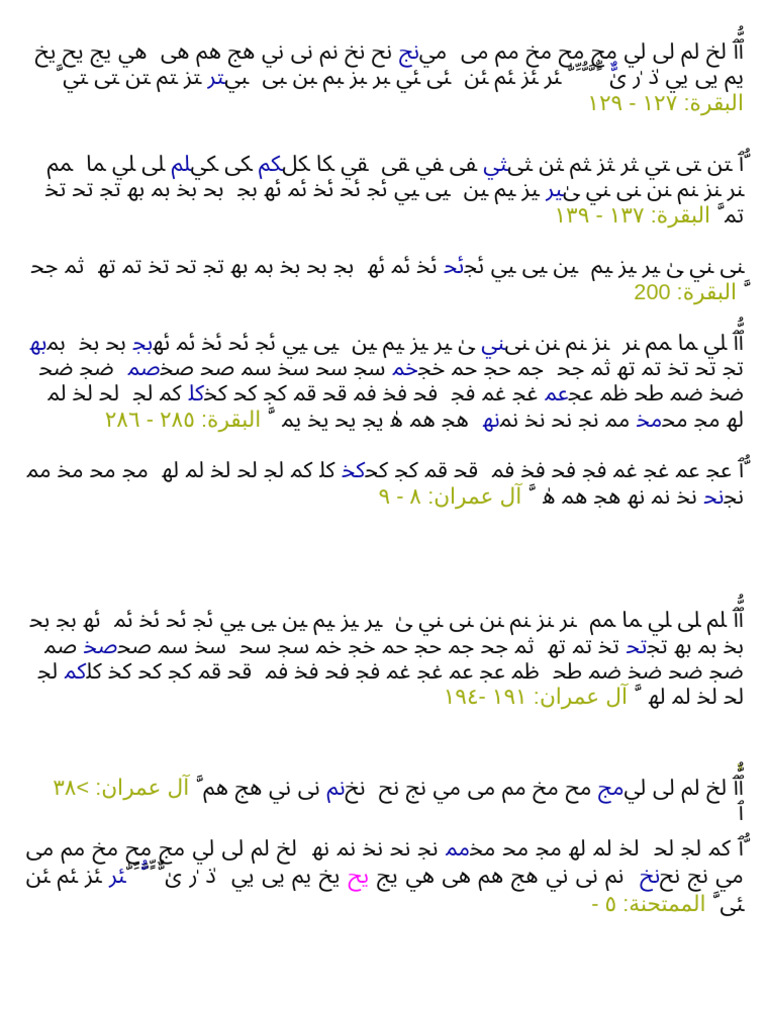 ُّ
ﱥﱥ لخ لم لى لي مج مح مخ مم مى مينج نح نخ نم نى ني هج هم هى هي يج يح يخ
يم يى يي ذٰ رٰ ىٰ ئر ئز ئم ئن ئى ئي بر بز بم بن بى بيتر تز تم تن تى تي َّ
البقرة: ١٢٧ - ١٢٩
تن تى تي ثر ثز ثم ثن ثىثي فى في قى قي كا كلكم كى كيلم لى لي ما مم
نر نز نم نن نى ني ىٰير يز يم ين يى يي ئج ئح ئخ ئم ئه بج بح بخ بم به تج تح تخ
تم َّ البقرة: ١٣٧ - ١٣٩
نى ني ىٰ ير يز يم ين يى يي ئجئح ئخ ئم ئه بج بح بخ بم به تج تح تخ تم ته ثم جح
َّ البقرة: 200
لي ما مم نر نز نم نن نىني ىٰ ير يز يم ين يى يي ئج ئح ئخ ئم ئهبج بح بخ بمبه
تج تح تخ تم ته ثم جح جم حج حم خجخم سج سح سخ سم صح صخصم ضج ضح
ضخ ضم طح ظم عجعم غج غم فج فح فخ فم قح قم كج كح كخكل كم لج لح لخ لم
له مج محمخ مم نج نح نخ نمنه هج هم هٰ يج يح يخ يم َّ البقرة: ٢٨٥ - ٢٨٦
عج عم غج غم فج فح فخ فم قح قم كج كحكخ كل كم لج لح لخ لم له مج مح مخ مم
نجنح نخ نم نه هج هم هٰ َّ آل عمران: ٨ - ٩
لم لى لي ما مم نر نز نم نن نى ني ىٰ ير يز يم ين يى يي ئج ئح ئخ ئم ئه بج بح
بخ بم به تجتح تخ تم ته ثم جح جم حج حم خج خم سج سح سخ سم صحصخ صم
ضج ضح ضخ ضم طح ظم عج عم غج غم فج فح فخ فم قح قم كج كح كخ كلكم لج
لح لخ لم له َّ آل عمران: ١٩١ -١٩٤
لخ لم لى ليمج مح مخ مم مى مي نج نح نخنم نى ني هج هم َّ آل عمران: >٣٨
ٱ
كم لج لح لخ لم له مج مح مخمم نج نح نخ نم نه لخ لم لى لي مج مح مخ مم مى
مي نج نحنخ نم نى ني هج هم هى هي يج يح يخ يم يى يي ذٰ رٰ ىٰ ئر ئز ئم ئن
ئى َّ الممتحنة: ٥ -